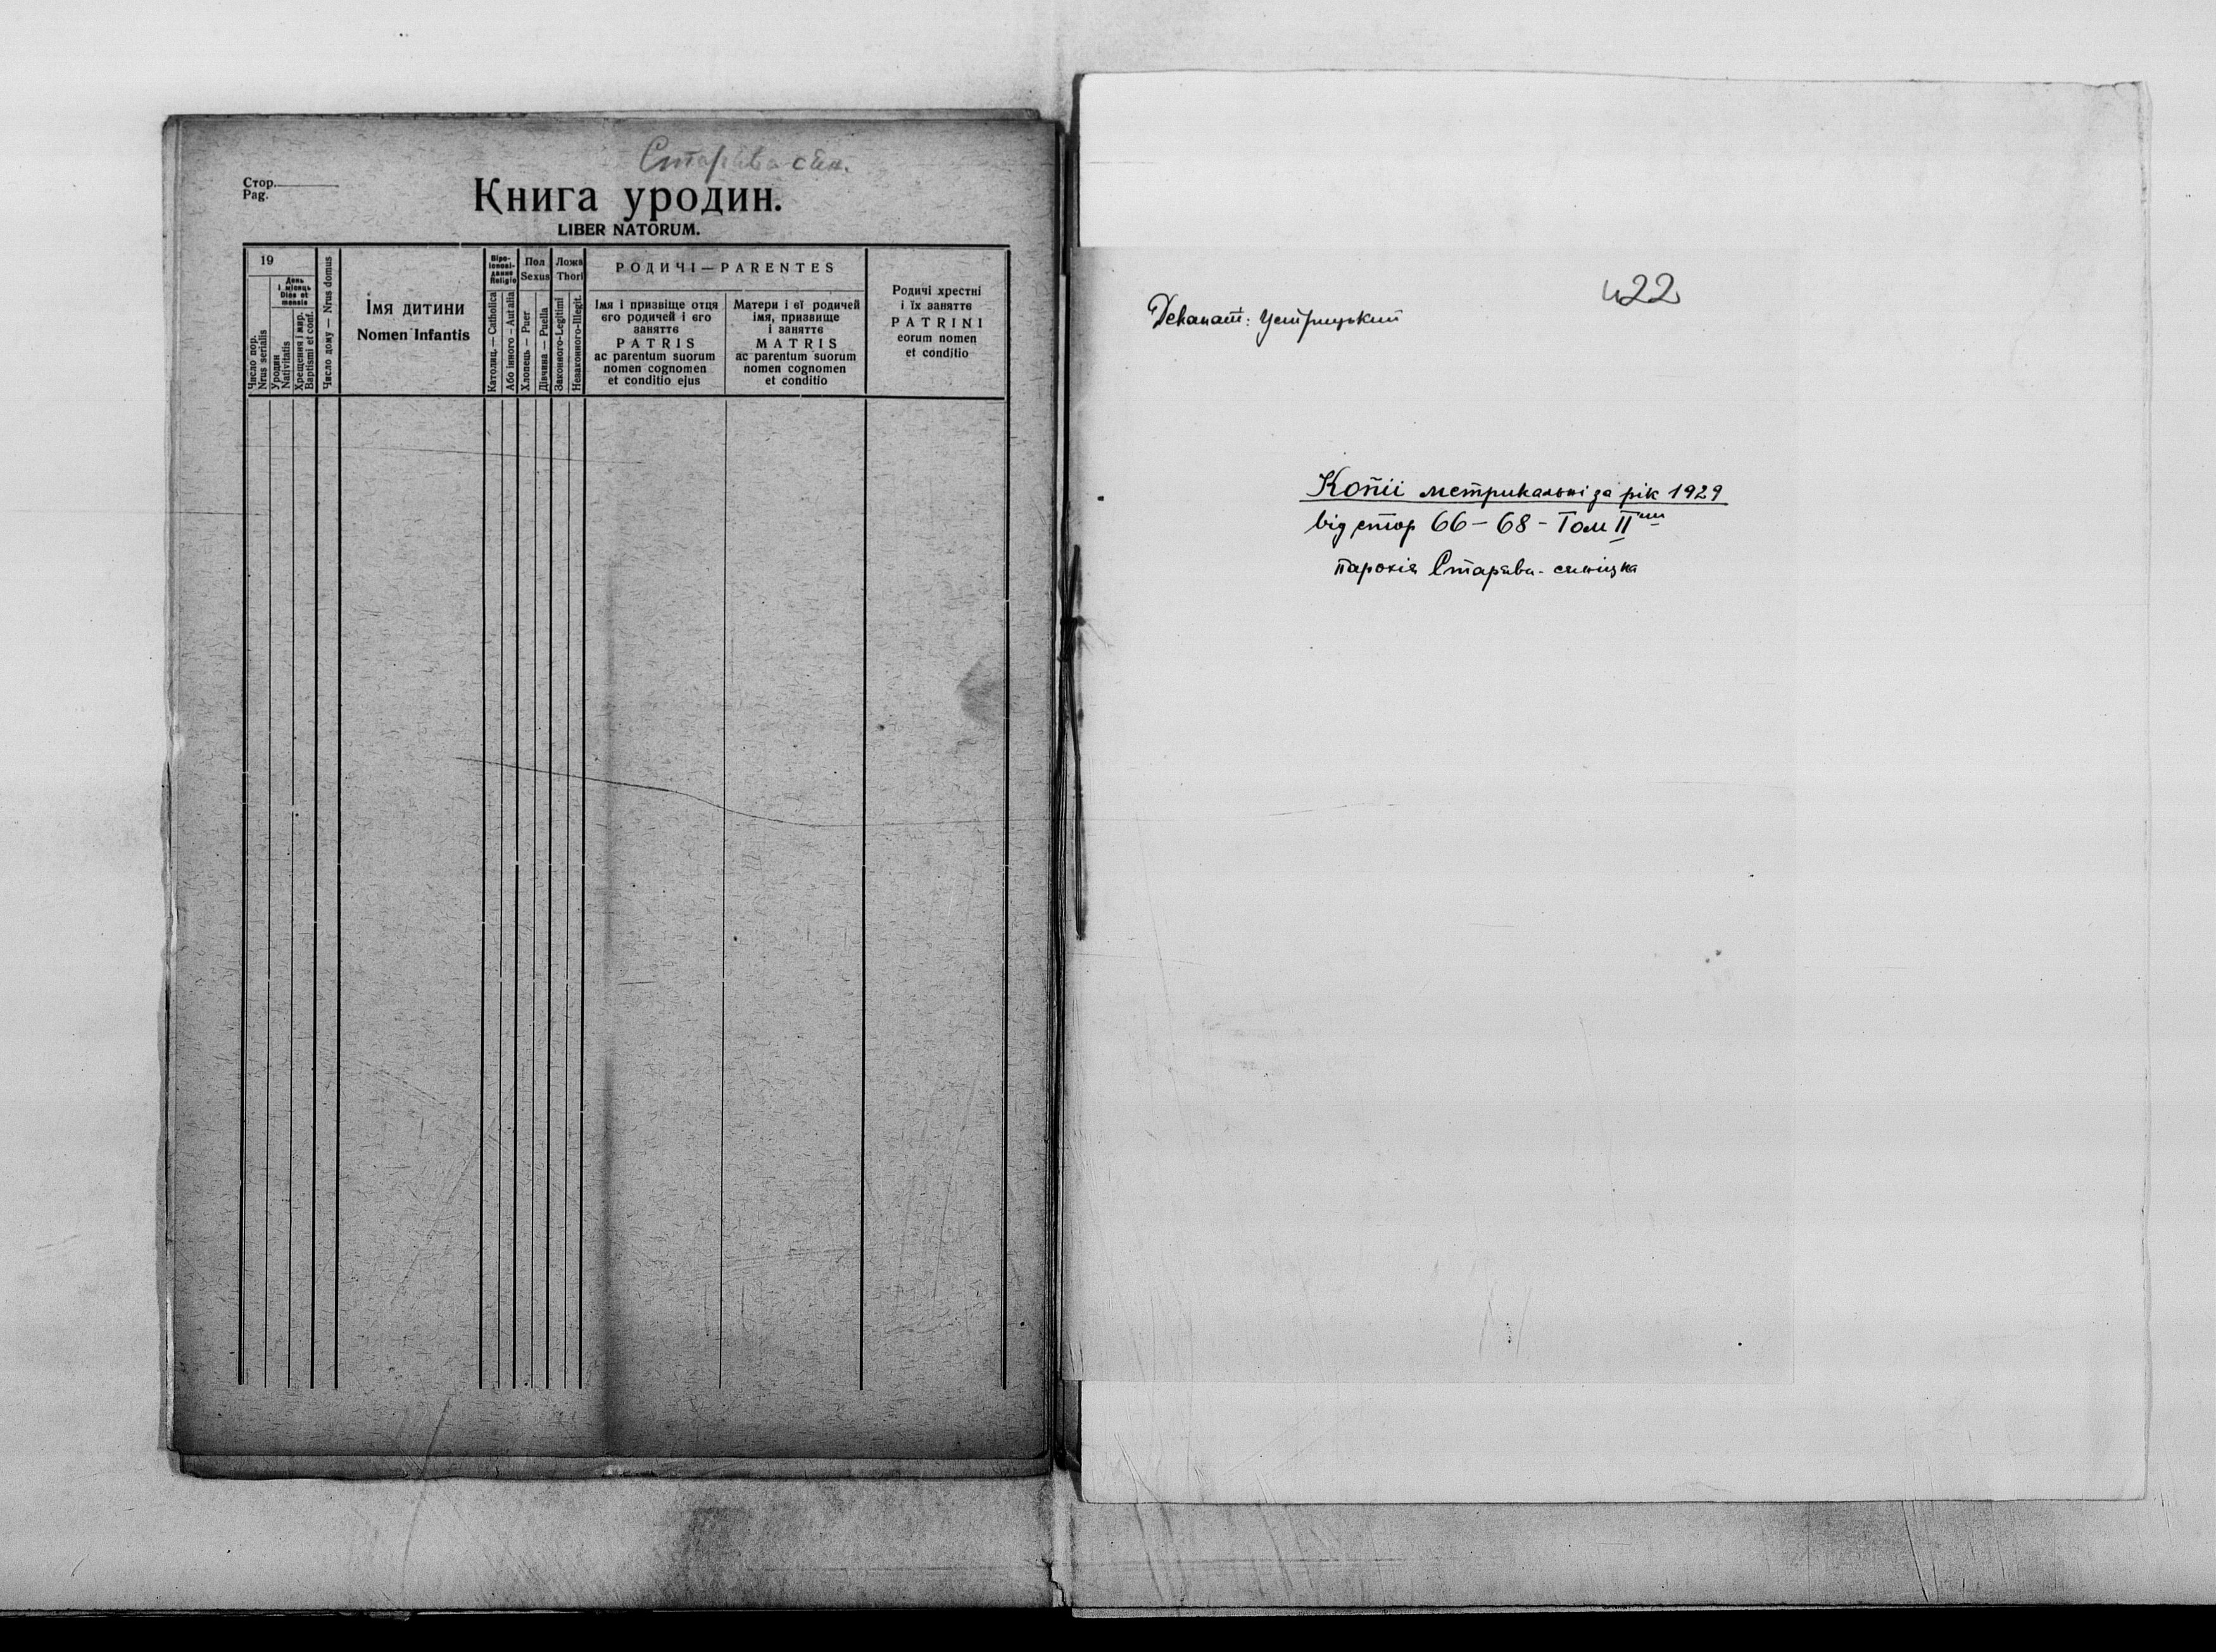 Старява сян.
Стор.
Pag.
Книга уродин.
LIBER NATORUM.
19
День
і місяць
Dies et
mensis
Число пор.
Nrus serialis
Уродин
Nativitatis
Хрещення і мир.
Baptismi et conf.
Число дому — Nrus domus
Імя дитини
Nomen Infantis
Віро-
ісповідание
Religio
Католиц. — Catholica
Або іного — Aut alia
Пол
Sexus
Хлопець — Puer
Дівчина — Puella
Ложа
Thori
Законного-Legitimi
Незаконного-Illegit.
РОДИЧІ — PARENTES
Імя і призвіще отця
єго родичей і єго
занятє
PATRIS
ac parentum suorum
nomen cognomen
et conditio ejus
Матери і єї родичей
імя, призвище
і занятє
MATRIS
ac parentum suorum
nomen cognomen
et conditio
Родичі хрестні
і їх занятє
PATRINI
eorum nomen
et conditio
422
Деканат: Устрицький
Копії метрикальні за рік 1929
від стор 66 – 68 – Том II
парохія Старява